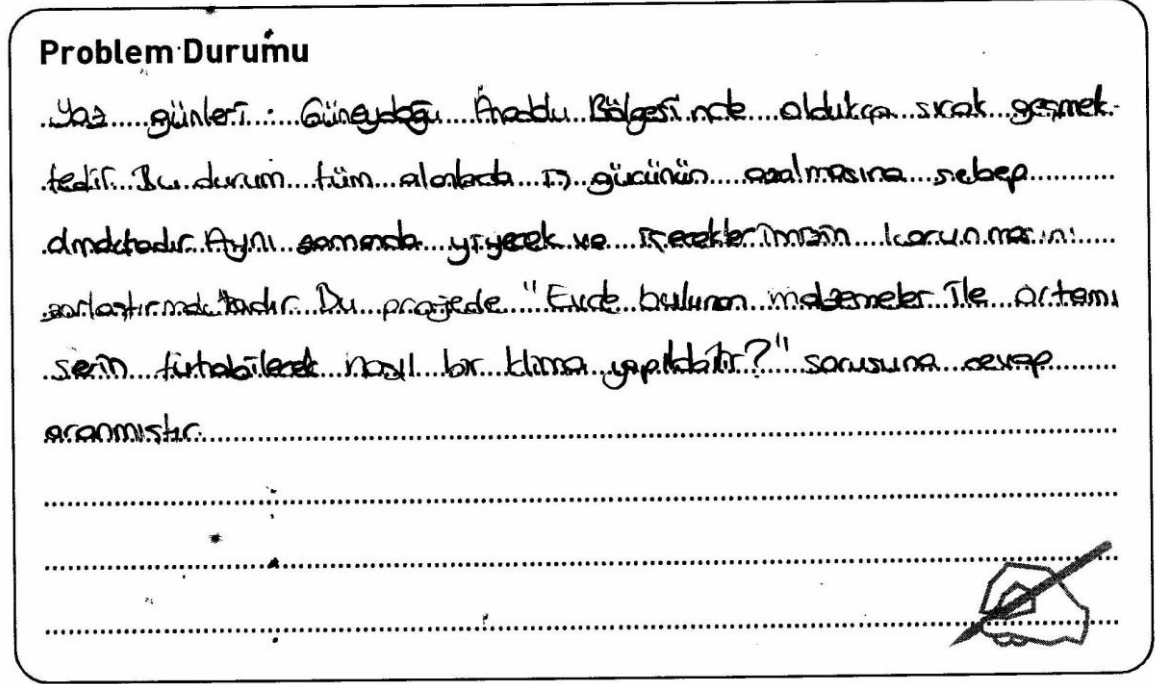 Problem Durumu
Yaz günleri Güneydoğu Anadolu Bölgesi'nde oldukça sıcak geçmek-
tedir. Bu durum tüm alanlarda iş gücünün azalmasına sebep
olmaktadır. Aynı zamanda yiyecek ve içeceklerimizin korunmasını
zorlaştırmaktadır. Bu projede "Evde bulunan malzemeler ile ortamı
serin tutabilecek nasıl bir klima yapılabilir?" sorusuna cevap
aranmıştır.